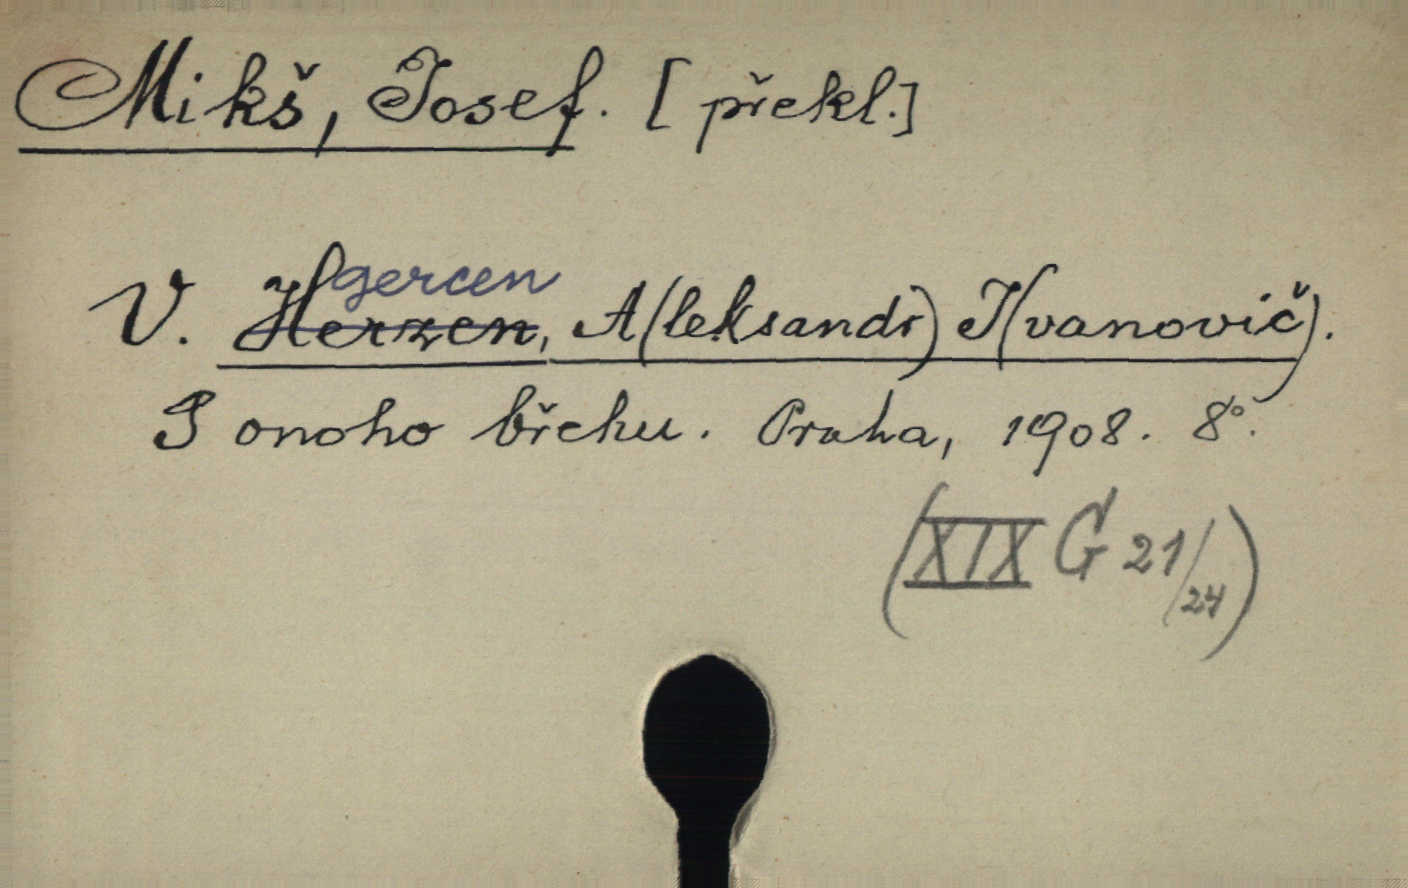 Mikš, Josef. [překl.]
gercen
V. Herzen, A(leksandr) I(vanovič).
S onoho břehu. Praha, 1908. 8°.
(XIX G 21/24)